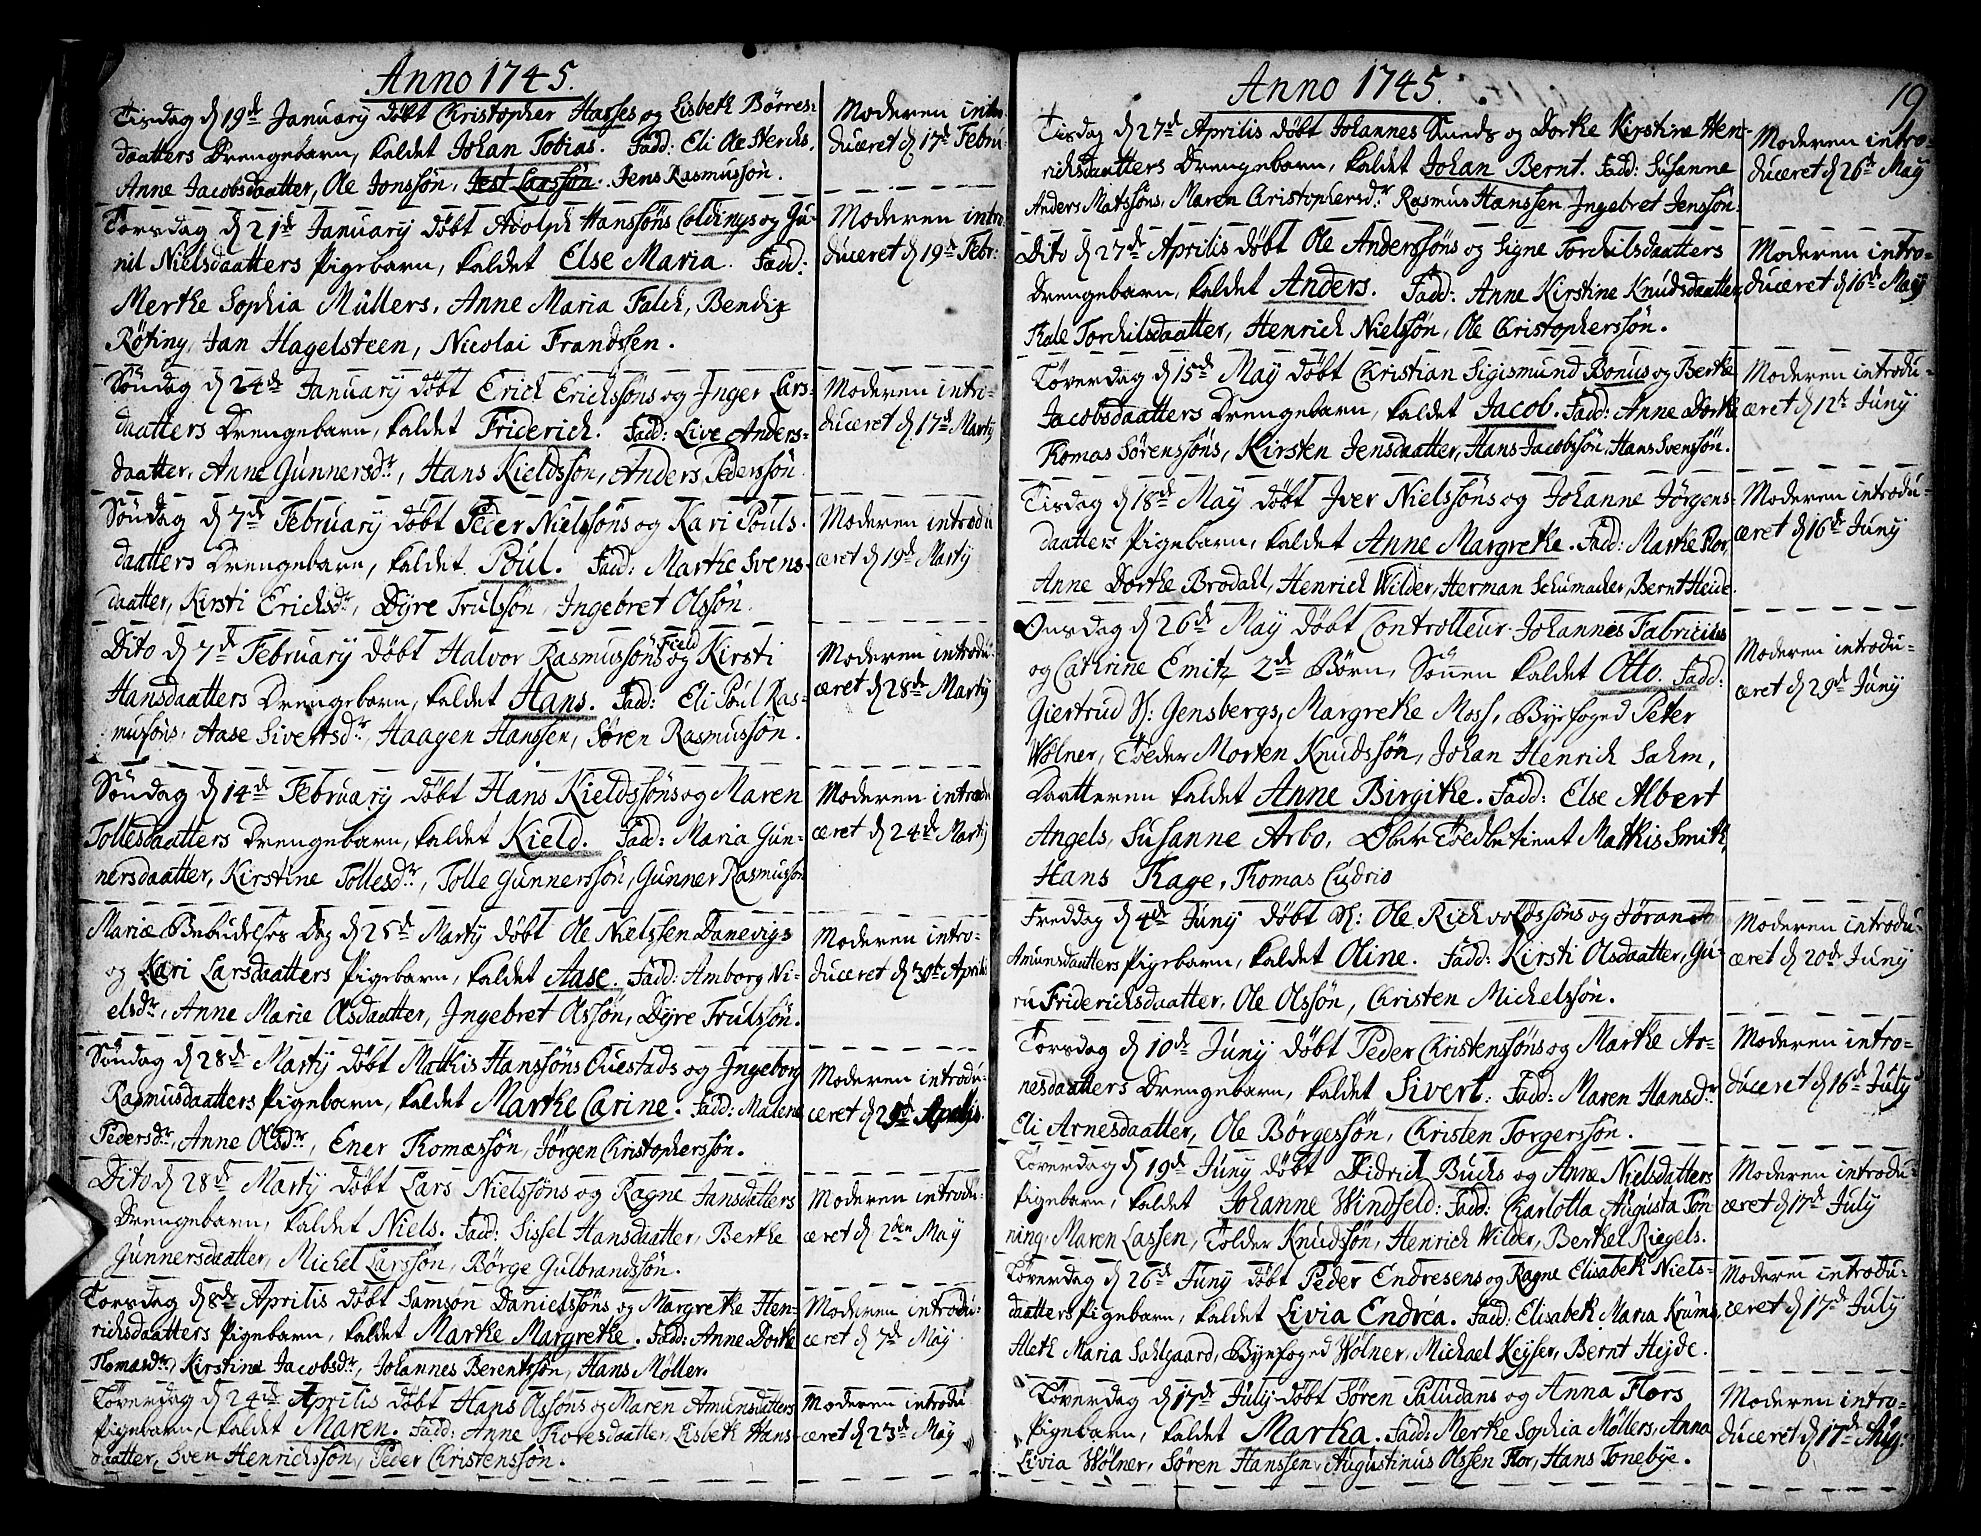 Anno 1745.
Tisdag d 19de January døbt Christopher Hasses og Lisbeth Børres:
daatters Drengebarn, kaldet Johan Tobias. Fadd: Eli Ole
Anne Jacobsdaatter, Ole Jonssøn, Jens Rasmussøn.
Moderen intro-
duceret d 17de Febru:
Torsdag d 21de January døbt Adolph Hanssøns Coldings og Gu-
nil Nielsdaatters Pigebarn, kaldet Else Maria. Fadd:
Merthe Sophia Müllers, Anne Maria Falch, Bendix
Røting, Jan Hagelsteen, Nicolai Frandssen.
Moderen intro
duceret d 19de Febr:
Søndag d 24de January døbt Erich Erichssøns og Inger Lars-
daatters Drengebarn, kaldet Friderich. Fadd: Live Anders-
daatter, Anne Gunnersdr, Hans Kieldssøn, Anders Pederssøn.
Moderen intri-
duceret d 17de Marty
Søndag d 7de February døbt Peder Nielssøns og Kari Pouls-
daatters Drengebarn, kaldet Poul. Fadd: Marthe Svens-
daatter, Kirsti Erichsdr, Dyre Trulssøn, Ingebret Olssøn.
Moderen introdu
æret d 19de Marty
Dito d 7de February døbt Halvor Rasmussøns Field og Kirsti
Hansdaatters Drengebarn, kaldet Hans. Fadd: Eli Poul Ras-
mussøns, Aase Sivertsdr, Haagen Hanssen, Søren Rasmussøn.
Moderen introdu-
æret d 28de Marty
Søndag d 14de February døbt Hans Kieldssøns og Maren
Tollesdaatters Drengebarn, kaldet Kield. Fadd: Maria Gun-
nersdaatter, Kirstine Tollesdr, Tolle Gunnerssøn, Gunner Rasmussøn
Moderen introdu
æret d 24de Marty
Mariæ Bebudelses Dag d 25de Marty døbt Ole Nielssen Danevigs
og Kari Larsdaatters Pigebarn, kaldet Aase. Fadd: Amborg Ni-
elsdr, Anne Marie Olsdaatter, Ingebret Olssøn, Dyre Trulssøn.
Moderen intro-
duceret d 30te Aprilis
Søndag d 28de Marty døbt Mathis Hanssøns Questads og Ingeborg
Rasmusdaatters Pigebarn, kaldet Marthe Carine. Fadd: Malene
Pedersdr, Anne Olsdr, Ener Thomæssøn, Jørgen Christopherssøn.
Moderen introdu-
æret d Aprilis
Dito d 28de Marty døbt Lars Nielssøns og Ragne Jansdatters
Drengebarn, kaldet Niels. Fadd: Sissel Hansdaatter, Berthe
Gunnersdaatter, Michel Larssøn, Børge Gulbrandssøn.
Moderen introdu-
æret d 2den May
Torsdag d 8de Aprilis døbt Samson Danielssøns og Margrethe Hen-
richsdaatters Pigebarn, kaldet Marthe Margrethe. Fadd: Anne Dorthe
Thomasdr, Kirstine Jacobsdr, Johannes Berentssøn, Hans Møller.
Moderen introdu-
æret d 7de May
Løverdag d 24de Aprilis døbt Hans Olssøns og Maren Amundsdatters
Pigebarn, kaldet Maren. Fadd: Anne Thoresdaatter, Lisbeth Hans-
daatter, Sven Henrichssøn, Peder Christenssøn.
Moderen introdu
æret d 23de May
Anno 1745.
19
Tisdag d 27de Aprilis døbt Johannes Smeds og Dorthe Kirstine Hen-
richsdaatters Drengebarn, kaldet Johan Bernt. Fadd: Susanne
Anders Matssøns, Maren Christophersdr Rasmus Hanssen, Ingebret Jenssøn.
Moderen intro-
duceret d 26de May
Dito d 27de Aprilis døbt Ole Anderssøns og Signe Torchilsdaatters
Drengebarn, kaldet Anders. Fadd: Anne Kirstine Knudsdaatter,
Thale Torchilsdaatter, Henrich Nielssøn, Ole Christopherssøn.
Moderen intro-
duceret d 16de May
Løverdag d 15de May døbt Christian Sigismund Bonus og Berthe
Jacobsdaatters Drengebarn, kaldet Jacob. Fadd: Anne Dorthe
Thomas Sørenssøns, Kirsten Jensdaatter, Hans Jacobssøn, Hans Svenssøn.
Moderen introdu-
æret d 12te Juny
Tisdag d 18de May døbt Iver Nielssøns og Johanne Jørgens-
daatters Pigebarn, kaldet Anne Margrethe. Fadd: Marthe Flor,
Anne Dorthe Brodahl, Henrich Wilder, Herman Schumacher, Bernt Heide.
Moderen introdu-
æret d 16de Juny
Onsdag d 26de May døbt Controlleur Johannes Fabricius
og Cathrine Emitz 2de Børn, Sønnen kaldet Otto. Fadd:
Giertrud Sr: Gensbergs, Margrethe Moss, Byefoged Peter
Wølner, Tolder Morten Knudssøn, Johan Henrich Sahm,
Daatteren kaldet Anne Birgithe. Fadd: Else Albert
Angels, Susanne Arbo, Ober Toldbetient Mathis Smith,
Hans Thage, Thomas Cudrio
Moderen introdu-
æret d 29de Juny
Freddag d 4de Juny døbt Sr: Ole Richvoldssøns og Jøran
Amunsdaatters Pigebarn, kaldet Oline. Fadd: Kirsti Olsdaatter, Gu-
ru Friderichsdaatter, Ole Olssøn, Christen Michelssøn.
Moderen introdu-
æret d 20de Juny
Torsdag d 10de Juny døbt Peder Christenssøns og Marthe Ar-
nesdaatters Drengebarn, kaldet Sivert. Fadd: Maren Hansdr
Eli Arnesdaatter, Ole Børgessøn, Christen Torgerssøn.
Moderen intro-
duceret d 16de July
Løverdag d 19de Juny døbt Didrich Buchs og Anne Nielsdatters
Pigebarn, kaldet Johanne Windfeld. Fadd: Charlotta Augusta Tøn
ning, Maren Lassen, Tolder Knudssøn, Henrich Wilder, Berthel Riegels.
Moderen introdu-
æret d 17de July
Løverdag d 26de Juny døbt Peder Endresens og Ragne Elisabeth Niels-
daatters Pigebarn, kaldet Livia Endrea. Fadd: Elisabeth Maria Krums,
Aleth Maria Sahlgaard, Byefoged Wølner, Michael Keyser, Bernt Heyde.
Moderen introdu-
æret d 17de July
Løverdag d 17de July døbt Søren Paludans og Anna Flors
Pigebarn, kaldet Martha. Fadd: Merthe Sophia Møllers, Anna
Livia Wølner, Søren Hanssen, Augustinus Olssen Flor, Hans Tonebye.
Moderen intro-
duceret d 17de Aug: